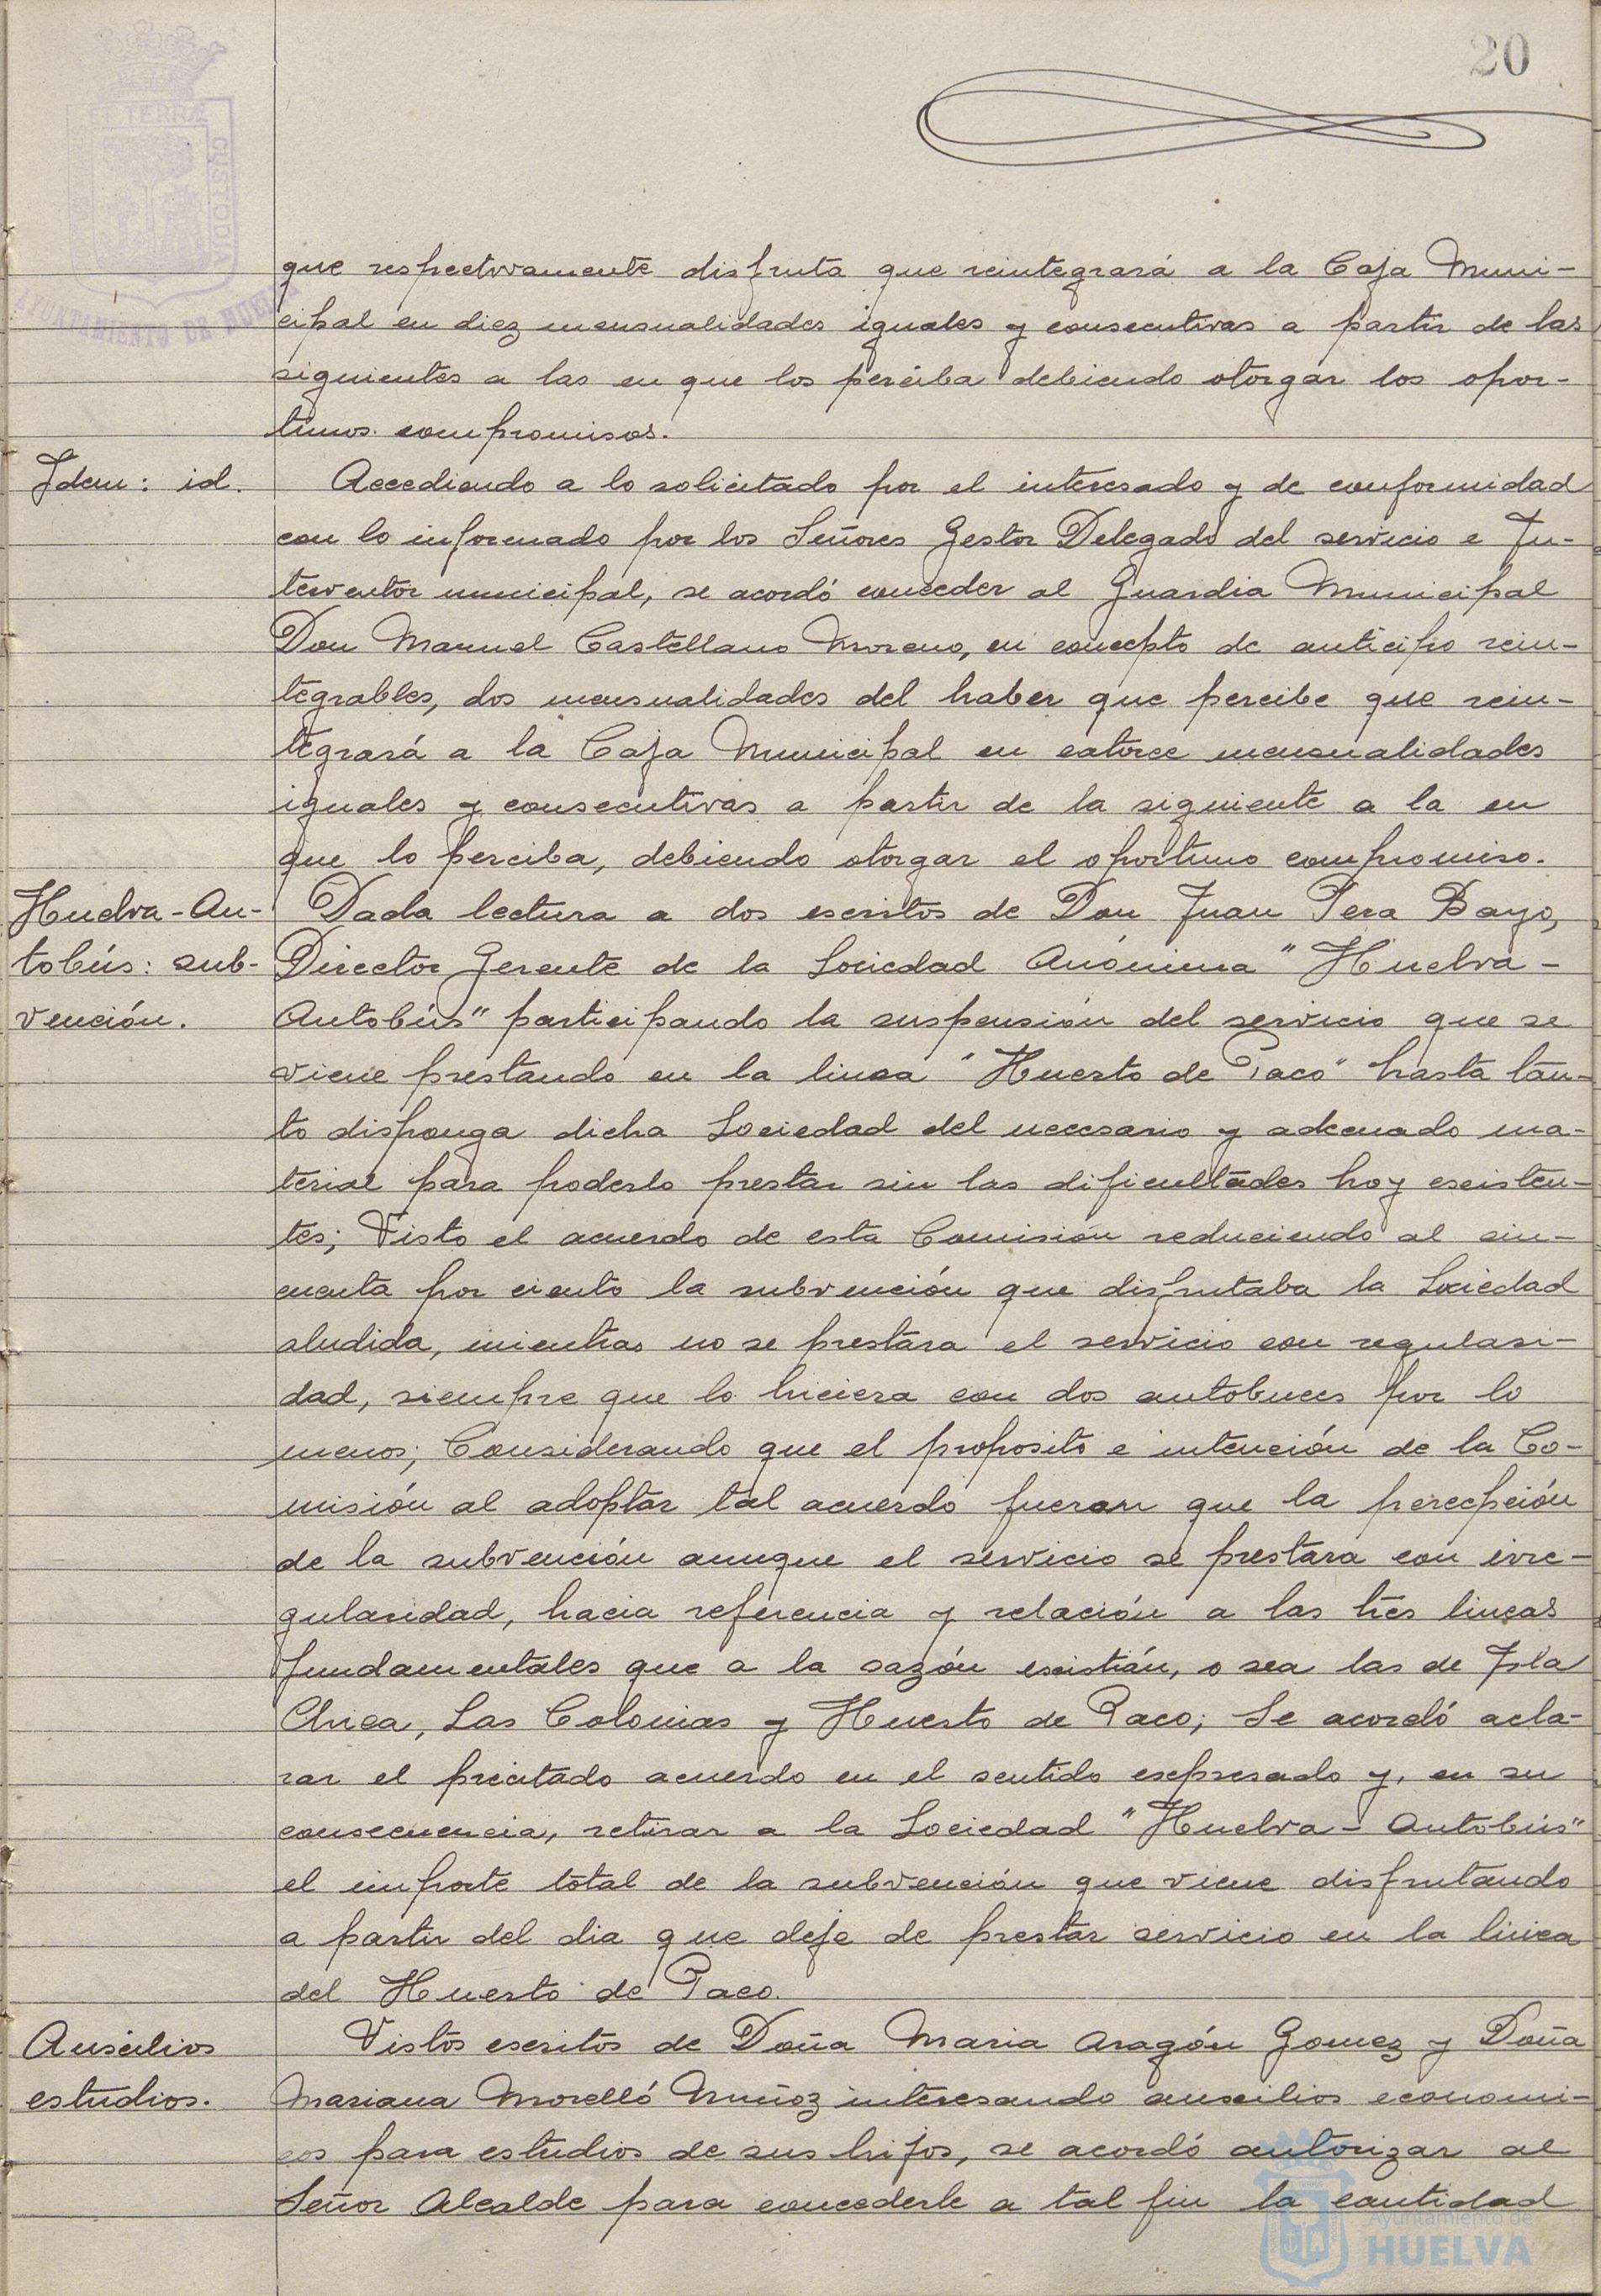 20
PORTUS MARIS ET TERRÆ CUSTODIA
AYUNTAMIENTO DE HUELVA
que respectivamente disfruta que reintegrará a la Caja Muni-
cipal en diez mensualidades iguales y consecutivas a partir de las
siguientes a las en que los perciba debiendo otorgar los opor-
tunos compromisos.
Idem: id.
Accediendo a lo solicitado por el interesado y de conformidad
con lo informado por los Señores Gestor Delegado del servicio e In-
terventor municipal, se acordó conceder al Guardia Municipal
Don Manuel Castellano Moreno, en concepto de anticipo rein-
tegrables, dos mensualidades del haber que percibe que rein-
tegrará a la Caja Municipal en catorce mensualidades
iguales y consecutivas a partir de la siguiente a la en
que lo perciba, debiendo otorgar el oportuno compromiso.
Huelva-Au-
tobús: sub-
vención.
Dada lectura a dos escritos de Don Juan Pera Bayo,
Director Gerente de la Sociedad Anónima "Huelva-
Autobús" participando la suspensión del servicio que se
viene prestando en la linea "Huerto de Paco" hasta tan-
to disponga dicha Sociedad del necesario y adecuado ma-
terial para poderlo prestar sin las dificultades hoy existen-
tes; Visto el acuerdo de esta Comisión reduciendo al cin-
cuenta por ciento la subvención que disfrutaba la Sociedad
aludida, mientras no se prestara el servicio con regulari-
dad, siempre que lo hiciera con dos autobuces por lo
menos; Considerando que el proposito e intención de la Co-
misión al adoptar tal acuerdo fueran que la percepción
de la subvención aunque el servicio se prestara con irre-
gularidad, hacia referencia y relación a las tres lineas
fundamentales que a la sazón existián, o sea las de Isla
Chica, Las Colonias y Huerto de Paco; Se acordó acla-
rar el precitado acuerdo en el sentido expresado y, en su
consecuencia, retirar a la Sociedad "Huelva-Autobús"
el importe total de la subvención que viene disfrutando
a partir del dia que deje de prestar servicio en la linea
del Huerto de Paco.
Auxilios
estudios.
Vistos escritos de Doña Maria Aragón Gomez y Doña
Mariana Morelló Muñoz interesando auxilios economi-
cos para estudios de sus hijos, se acordó autorizar al
Señor Alcalde para concederle a tal fin la cantidad
Ayuntamiento de
HUELVA